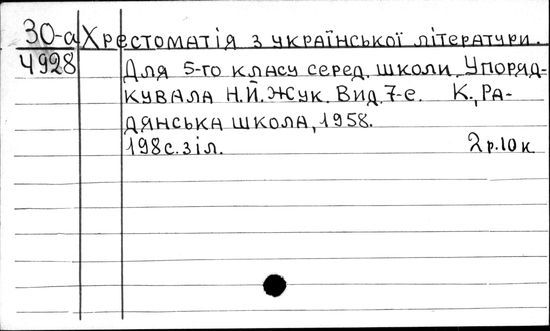 30-а Хрестоматія з української літератури.
4928 Для 5-го класу серед. школи. Упоряд-
кувала Н.Й. Жук. Вид. 7-е. К., Ра-
дянська школа, 1958.
198 с. з іл. 2 р. 10 к.